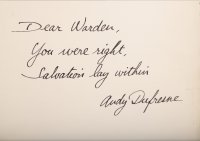 Dear Warden,
You were right,
Salvation lay within
Andy Dufresne